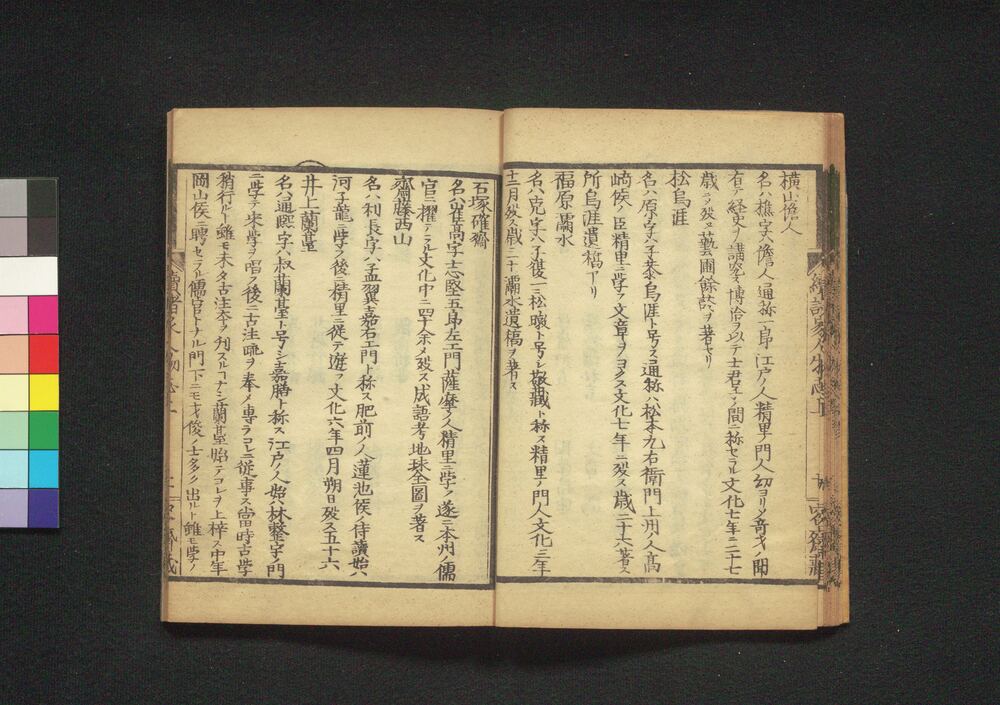 横山儋人
名ハ樵字ハ儋人通称一郎江戸ノ人精里ノ門人幼ヨリ奇才ノ聞
有テ経史ヲ講究ス博洽ヲ以テ士君子ノ間ニ称セラル文化七年二十七
歳ニ〆歿ス藝圃餘談ヲ著セリ
松烏涯
名ハ原字ハ子恭烏涯ト号ス通称ハ松本九右衛門上州ノ人高
崎侯ノ臣精里ニ学フ文章ヲヨクス文化七年ニ歿ス歳二十六著ス
所烏涯遺稿アリ
福原瀰水
名ハ克字ハ子復一ニ松巘ト号シ敬蔵ト称ス精里ノ門人文化三年
十二月歿ス歳三十瀰水遺稿ヲ著ス
石塚確齋
名ハ崔高字士志堅五郎左エ門薩摩ノ人精里ニ学フ遂ニ本州ノ儒
官ニ擢テラル文化中ニ四十余〆歿ス成語考地球全圖ヲ著ス
齋藤西山
名ハ利長字ハ孟翼嘉右エ門ト称ス肥前ノ人蓮池侯ノ侍讀始ハ
河子龍ニ学フ後ニ精里ニ從テ遊フ文化六年四月朔日歿ス五十六
井ノ上蘭臺
名ハ通熙字ハ叔蘭臺ト号シ嘉膳ト称ス江戸ノ人始ハ林整宇ノ門
ニ学テ宋学ヲ唱フ後ニ古注疏ヲ奉〆専ラコレニ従事ス當時古学
稍行ルト雖モ未タ古注本ヲ刋スルコナシ蘭臺始テコレヲ上梓ス中年
岡山侯ニ聘セラル儒官トナル門下ニモ才俊ノ士多ク出ルト雖モ学ノ
續諸家人物志上